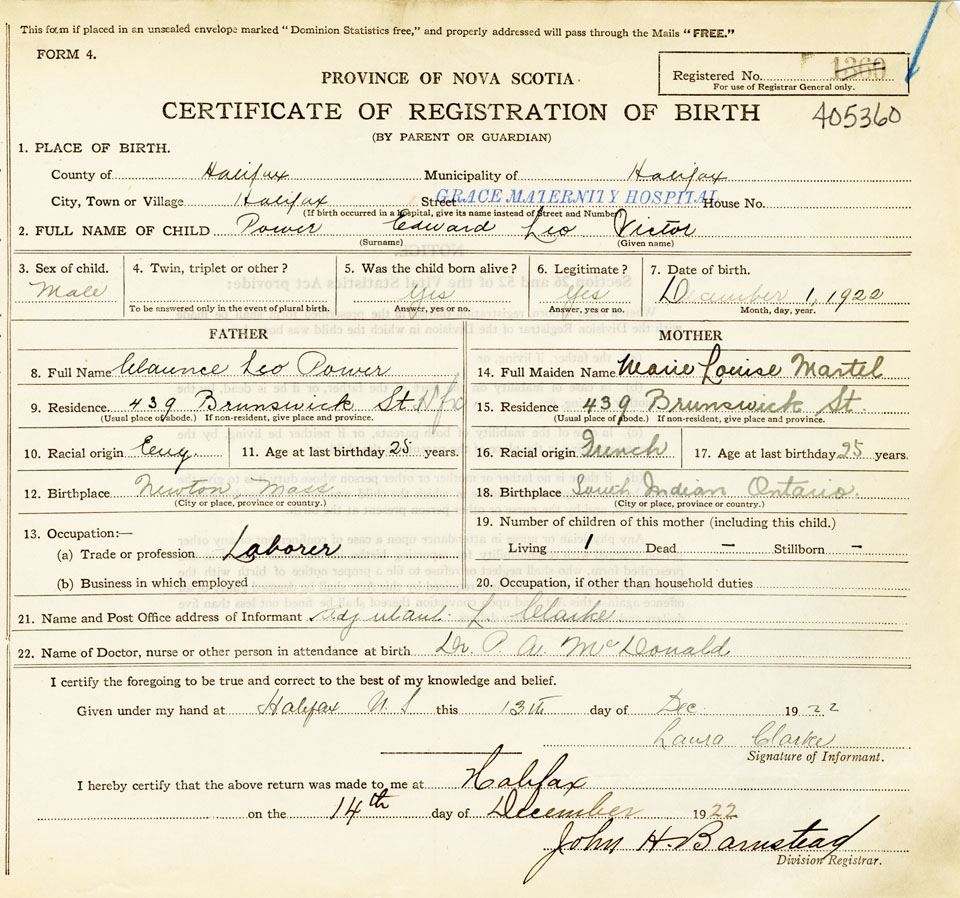 This form if placed in an unsealed envelope marked "Dominion Statistics free," and properly addressed will pass through the Mails "FREE."
FORM 4.
PROVINCE OF NOVA SCOTIA
Registered No. 1360
For use of Registrar General only.
CERTIFICATE OF REGISTRATION OF BIRTH
405360
(BY PARENT OR GUARDIAN)
1. PLACE OF BIRTH.
County of Halifax Municipality of Halifax
City, Town or Village Halifax Street GRACE MATERNITY HOSPITAL House No.
(If birth occurred in a hospital, give its name instead of Street and Number)
2. FULL NAME OF CHILD Power Edward Leo Victor
(Surname) (Given name)
3. Sex of child. 4. Twin, triplet or other? 5. Was the child born alive? 6. Legitimate? 7. Date of birth.
Male Yes Yes December 1, 1922
To be answered only in the event of plural birth. Answer, yes or no. Answer, yes or no. Month, day, year.
FATHER MOTHER
8. Full Name Leo Power 14. Full Maiden Name Marie Louise Martel
9. Residence 439 Brunswick St 15. Residence 439 Brunswick St.
(Usual place of abode.) If non-resident, give place and province. (Usual place of abode.) If non-resident, give place and province.
10. Racial origin Eng. 11. Age at last birthday 25 years. 16. Racial origin French 17. Age at last birthday 25 years.
12. Birthplace Newton, Mass 18. Birthplace South Indian Ontario.
(City or place, province or country.) (City or place, province or country.)
13. Occupation:— 19. Number of children of this mother (including this child.)
(a) Trade or profession Laborer Living 1 Dead — Stillborn —
(b) Business in which employed 20. Occupation, if other than household duties
21. Name and Post Office address of Informant Adjutant L. Clarke
22. Name of Doctor, nurse or other person in attendance at birth Dr. P. A. McDonald
I certify the foregoing to be true and correct to the best of my knowledge and belief.
Given under my hand at Halifax N S this 13th day of Dec 1922
Laura Clarke
Signature of Informant.
I hereby certify that the above return was made to me at Halifax
on the 14th day of December 1922
John H. Barnstead
Division Registrar.